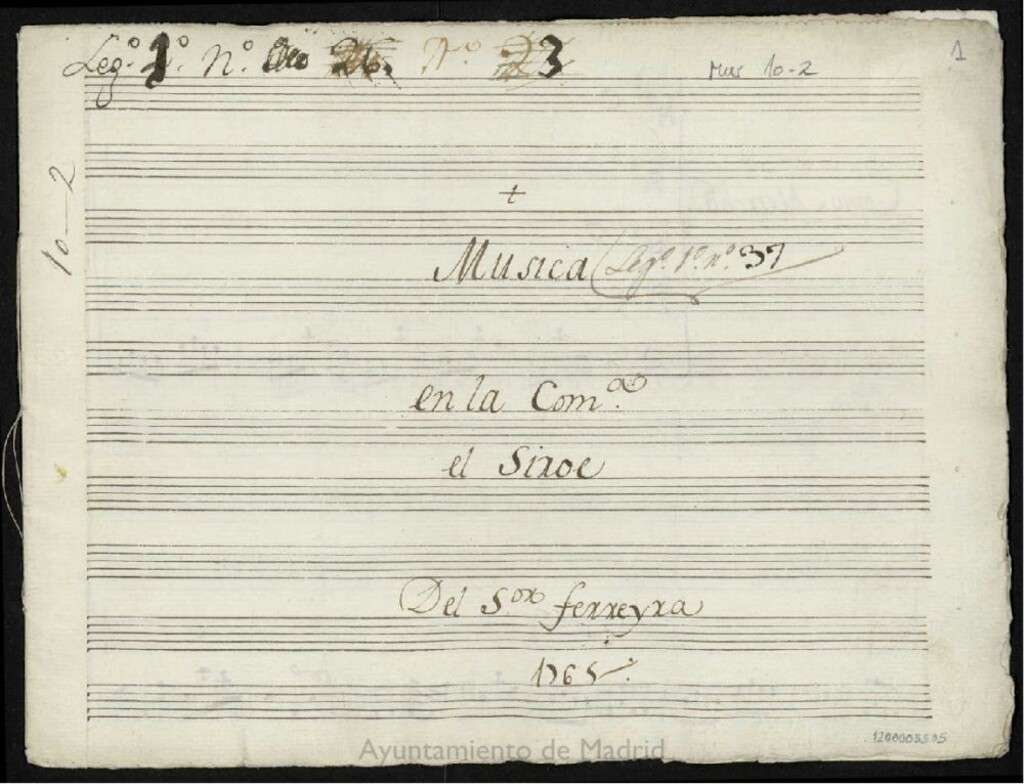 Leg.º 1.º N.º 26. N.º 23
Mus 10-2
1
10-2
+
Musica Leg.º 1.º n.º 37
en la Com.ª
el Siroe
Del S.or ferreyra
1765.
Ayuntamiento de Madrid